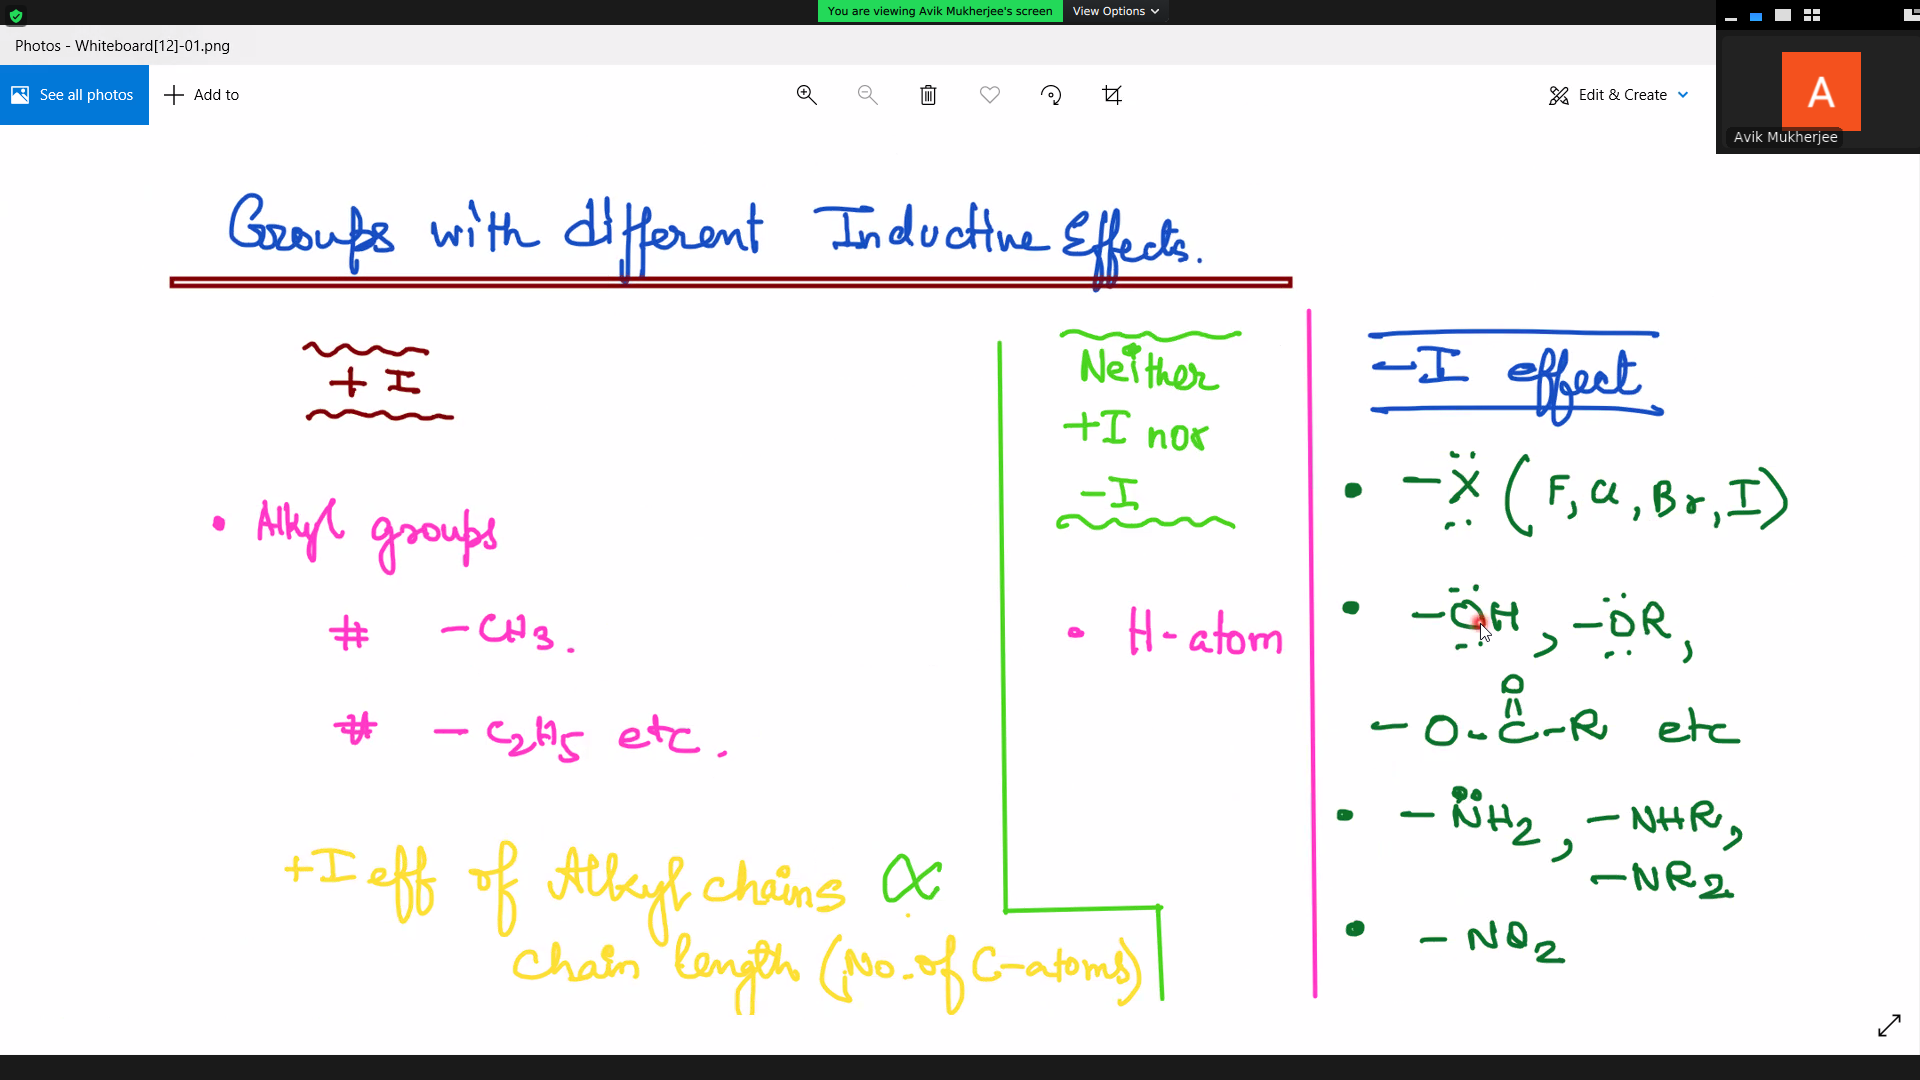 You are viewing Avik Mukherjee's screen View Options
Photos - Whiteboard[12]-01.png
See all photos
Add to
Edit & Create
A
Avik Mukherjee
Groups with different Inductive Effects.
+ I
• Alkyl groups
# - CH3.
# - C2H5 etc.
+I eff of Alkyl chains ∝
chain length (No. of C-atoms)
Neither
+I nor
-I
• H-atom
-I effect
• -X (F, Cl, Br, I)
• -OH, -OR,
O
- O - C - R etc
• - NH2, - NHR,
- NR2
• - NO2